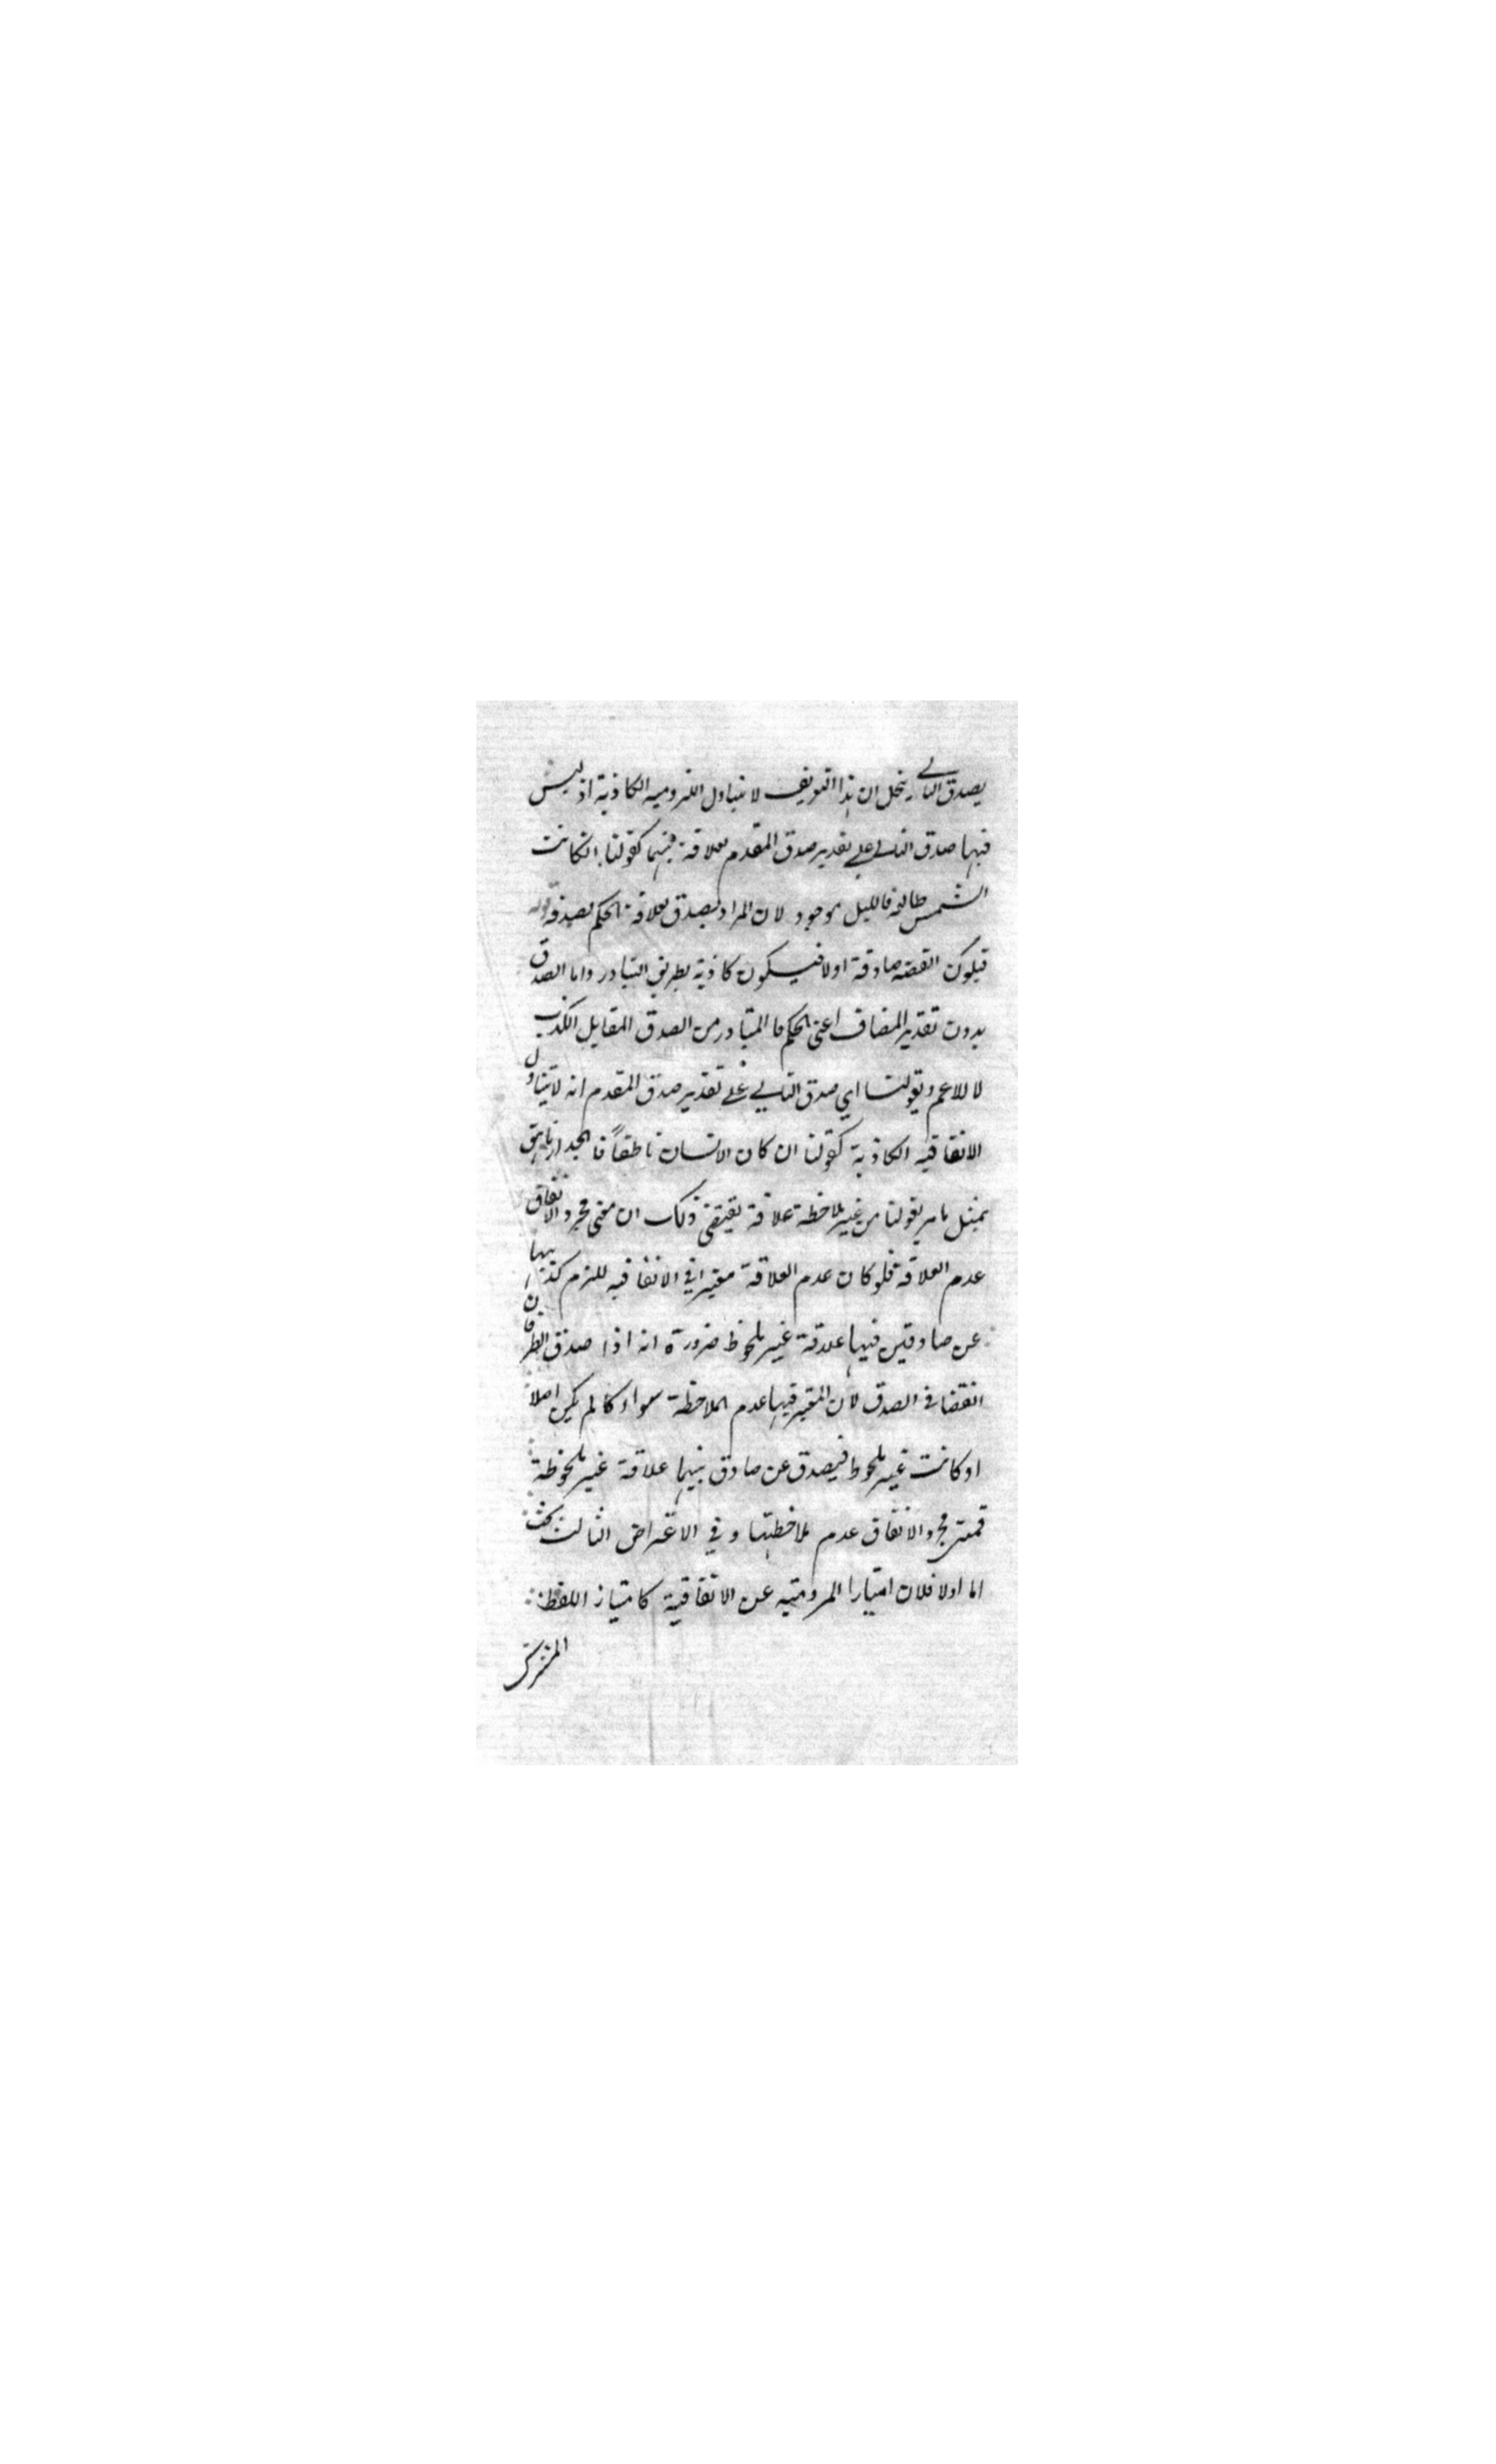 يصدق التالي ينحل ان هذا التعريف لا يتناول اللزومية الكاذبة اذ ليس
فيها صدق التالي على تقدير صدق المقدم لعلاقة بينهما كقولنا ان كانت
الشمس طالعة فالليل موجود لان المراد بصدق لعلاقة الحكم بصدقه
فيكون القضية صادقة اولا فيكون كاذبة بطريق التبادر واما الصدق
بدون تقدير المضاف اعني الحكم فالمتبادر من الصدق المقابل الكذب
لا للاعم وبقولنا اي صدق التالي على تقدير صدق المقدم انه لا يتناول
الاتفاقيه الكاذبة كقولنا ان كان الانسان ناطقاً فالجدار ناهق
بمثل ما مر بقولنا من غير ملاحظة علاقة يقتضي ذلك ان معنى مجرد الاتفاق
عدم العلاقة فلو كان عدم العلاقة معتبرا في الاتفاقيه للزم كذبها
عن صادقين فيها علاقة غير ملحوظ ضرورة انه اذا صدق الطرفان
انقضا في الصدق لان المعتبر فيها عدم الملاحظة سواء كا لم يكن اصلا
او كانت غير ملحوظ فيصدق عن صادق بينهما علاقة غير ملحوظة
فمعنى مجرد الاتفاق عدم ملاحظتها وفي الاعتراض الثالث بحث
اما اولا فلان امتيازا للزومية عن الاتفاقية كامتياز اللفظ
المشترك